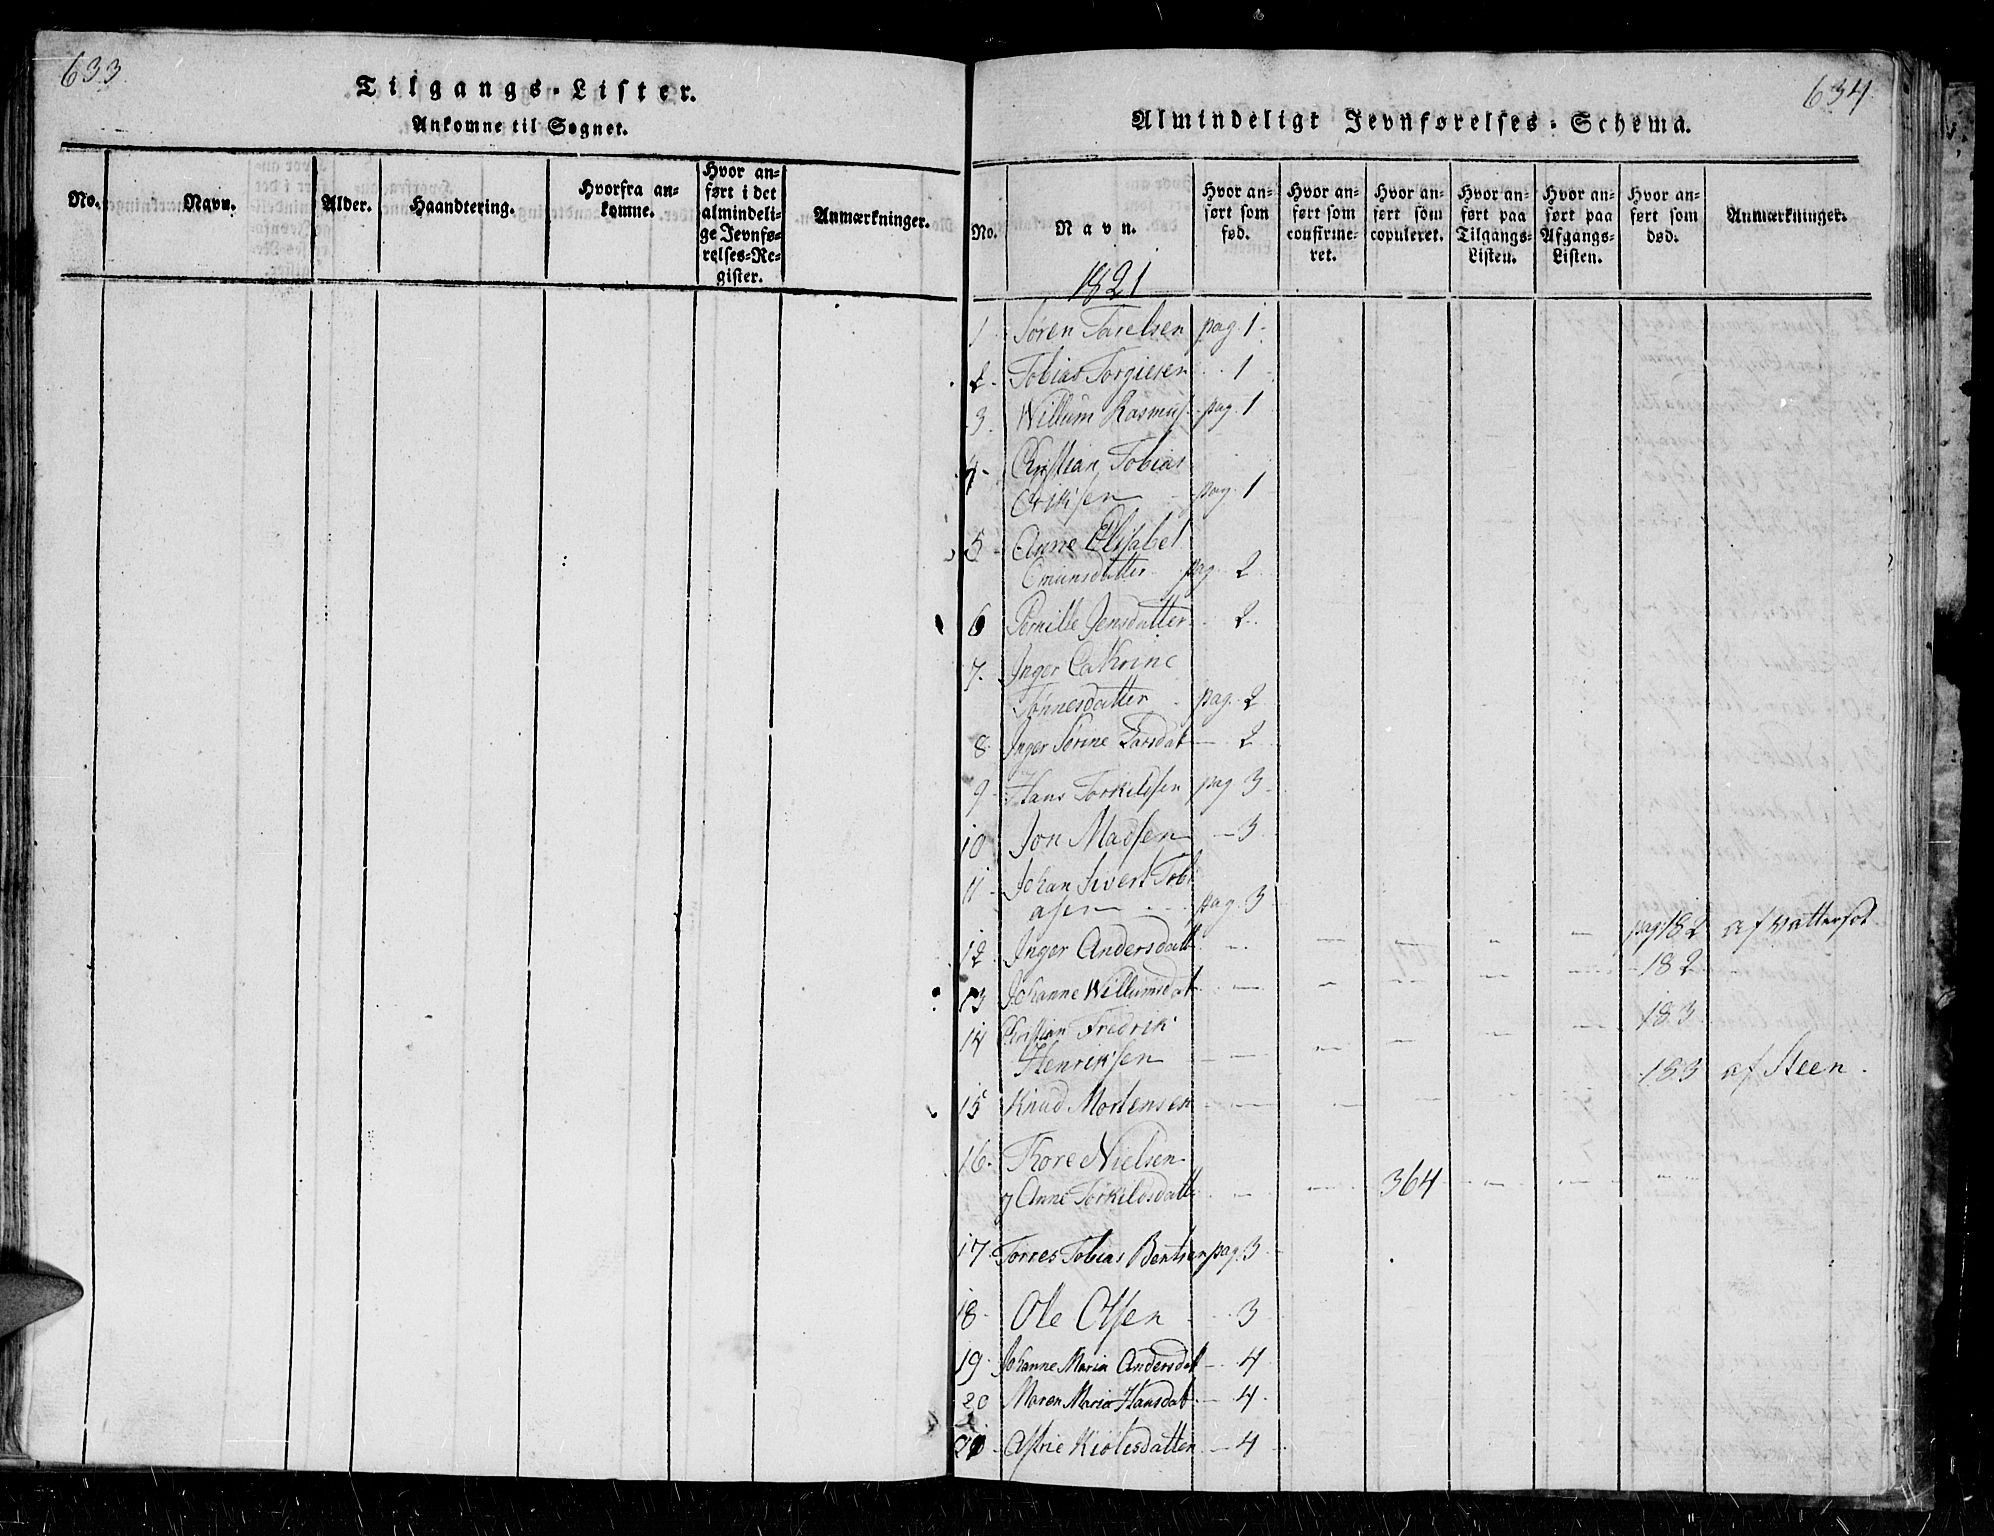 633
Tilgangs-Lister.
Ankomne til Sognet.
No. Navn. Alder. Haandtering. Hvorfra an=
komne. Hvor an=
ført i det
almindeli=
ge Jevnfø=
relses=Re=
gister. Anmærkninger.
634
Almindeligt Jevnførelses-Schema.
No. Navn. Hvor an=
ført som
fød. Hvor an=
ført som
confirme=
ret. Hvor an=
ført som
copuleret. Hvor an=
ført paa
Tilgangs=
Listen. Hvor an=
ført paa
Afgangs=
Listen. Hvor an=
ført som
død. Anmærkninger.
1821
1 Søren Tarelsen pag. 1
2 Tobias Torgiesen 1
3 Willum Rasmus pag. 1
4 Christian Tobias
Eriksen pag. 1
5 Anne Elisabet
Omunsdatter pag. 2
6 Pernille Jensdatter 2
7. Inger Cathrine
Tønnesdatter pag. 2
8 Inger Serine Larsdat 2
9 Hans Torkildsen pag 3
10 Jon Madsen 3
11 Johan Sivert Tobi
asen pag. 3
12 Inger Andersdatt pag 182
13 Johanne Willumsdat 182
14 Christian Fredrik
Henriksen 183
15 Knud Mortensen 183 af Steen.
16 Thore Nielsen
og Anne Torkildsdatte 364
17 Torres Tobias Bentsen pag. 3
18 Ole Olsen 3
19 Johanne Maria Andersdat 4
20 Maren Maria Hansdat 4
21 Astrie Kiølesdatter 4